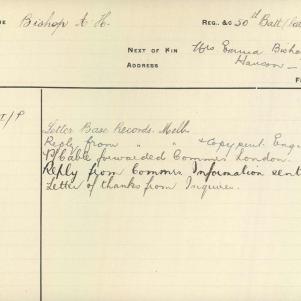 ME Bishop A H.
REG., &C 50th Batt/
NEXT OF KIN Mrs Emma Bishop
ADDRESS Hanson
Letter Base Records. Melb.
Reply from " " & copy sent Enq
Cable forwarded Commr London.
Reply from Commrs Information sent
Letter of thanks from Inquirer.